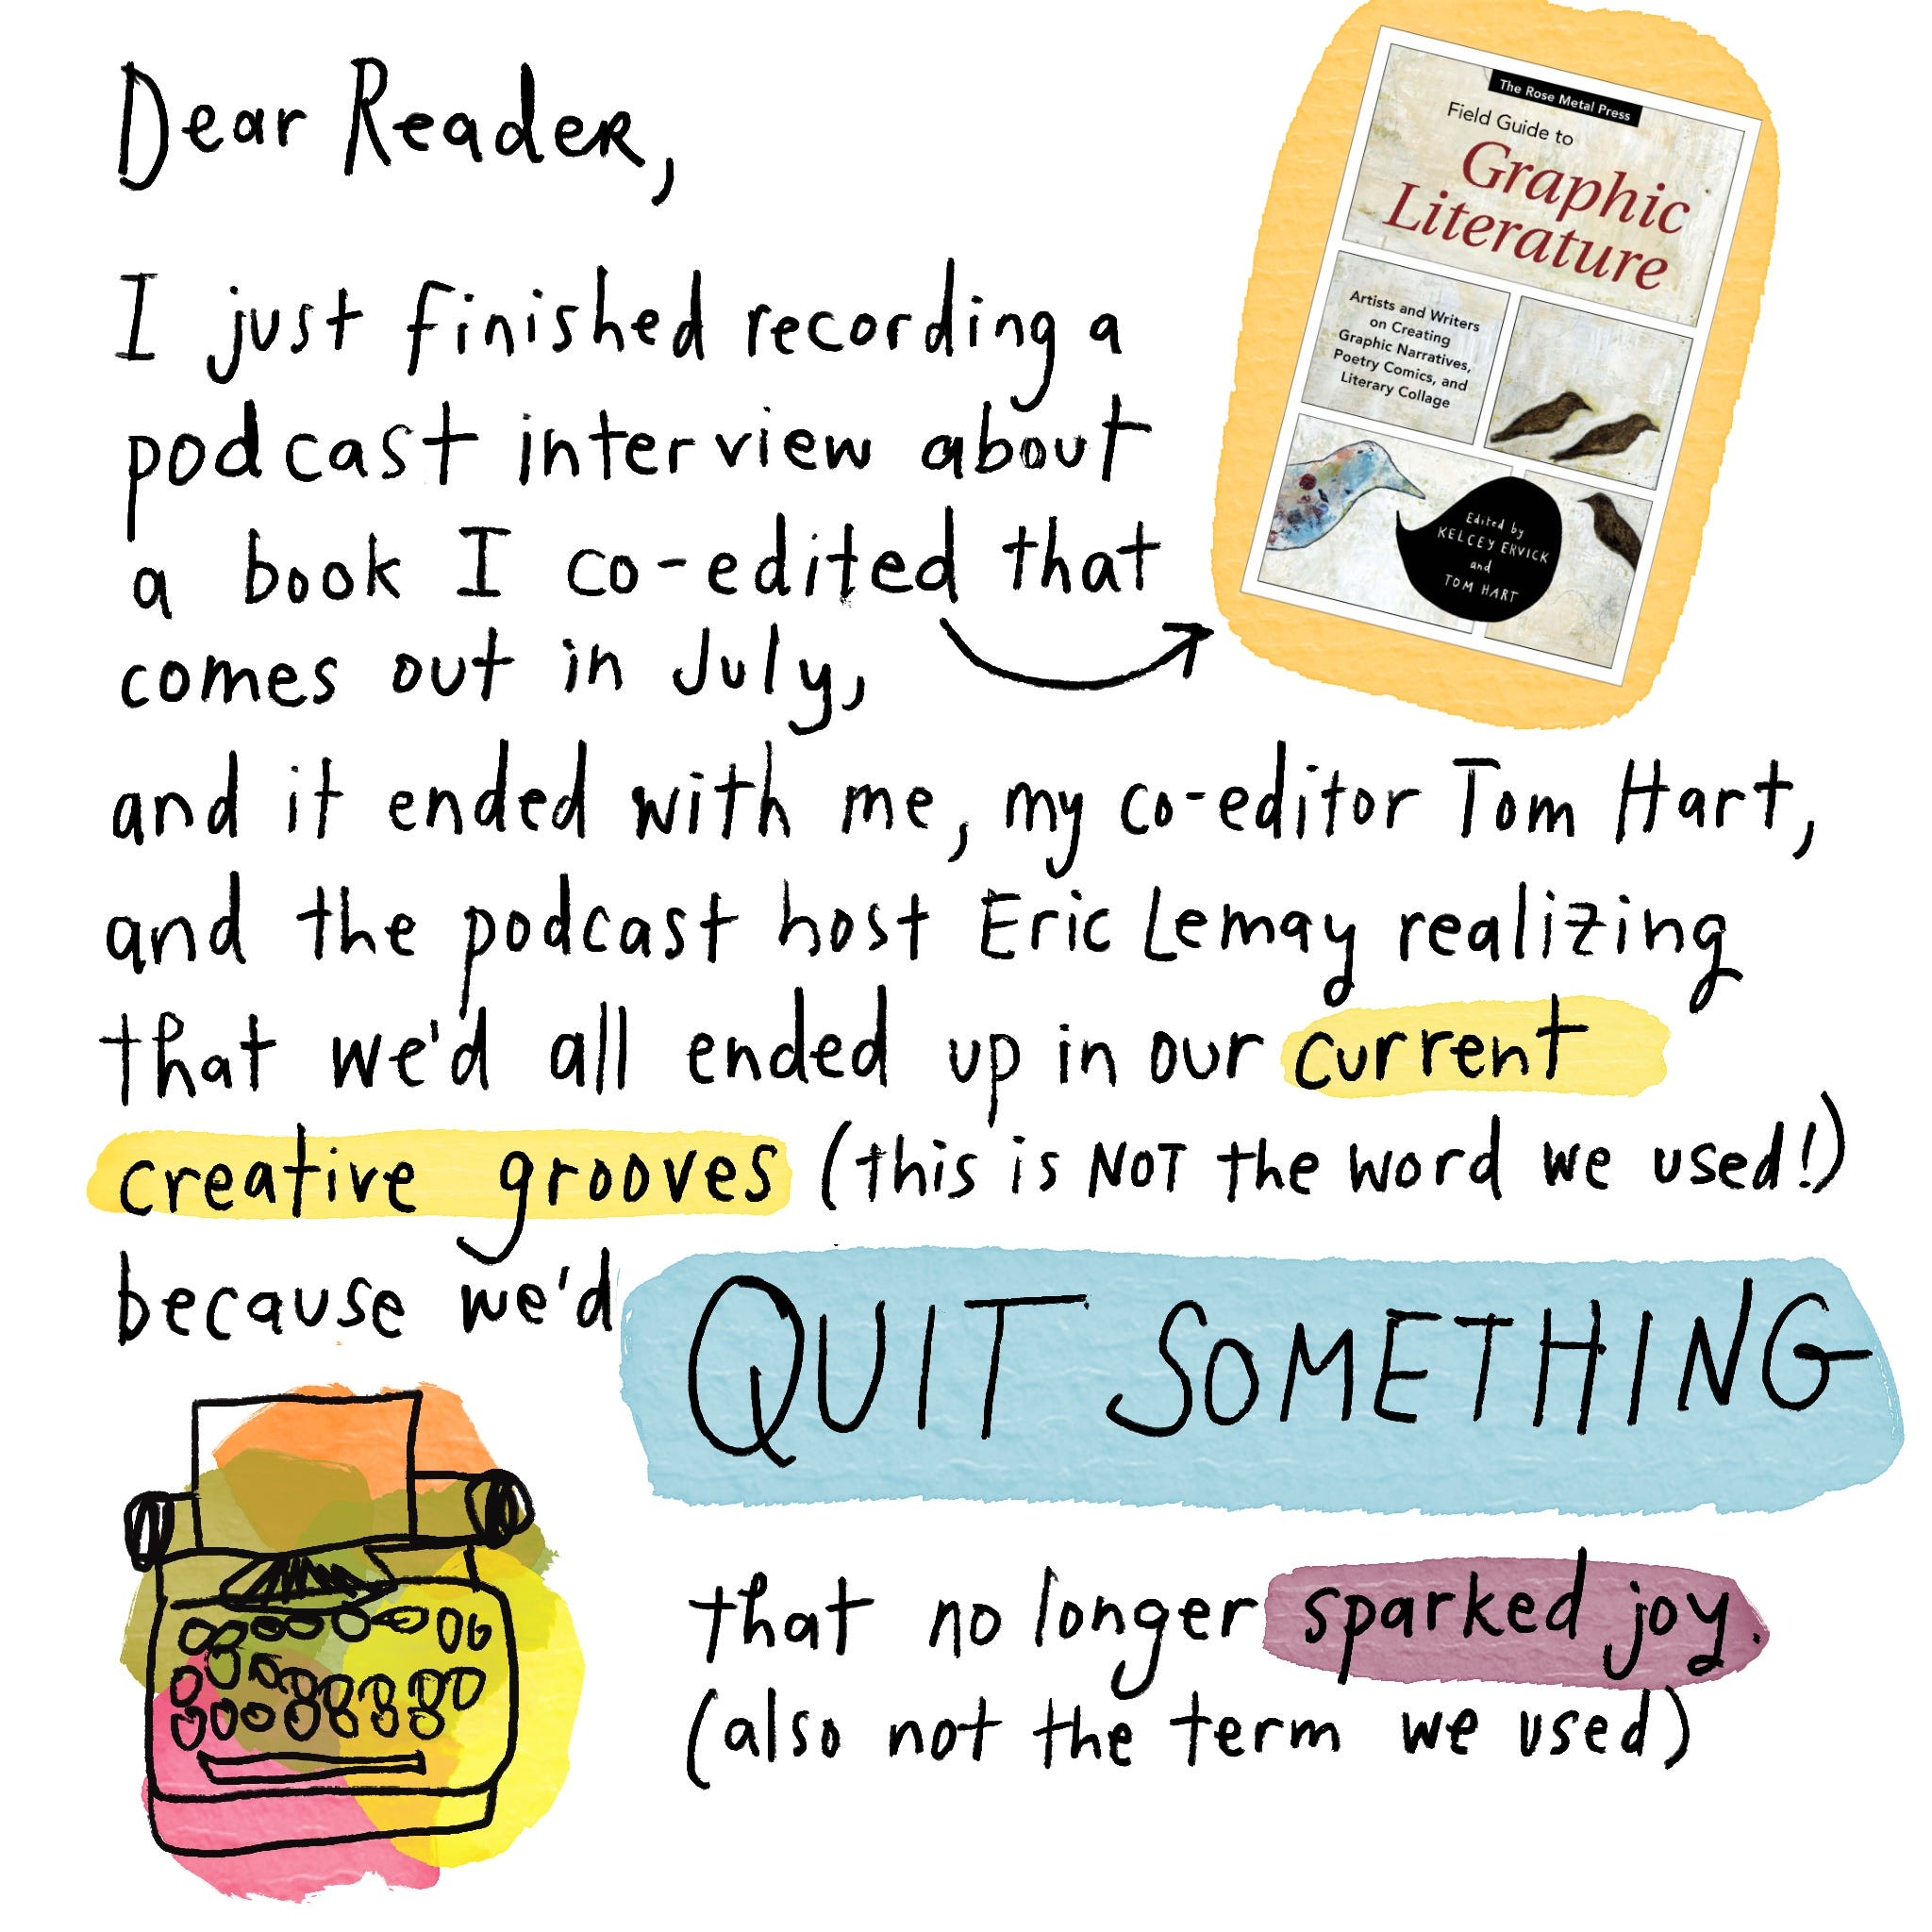 Dear Reader,
The Rose Metal Press
Field Guide to
Graphic
Literature
Artists and Writers
on Creating
Graphic Narratives,
Poetry Comics, and
Literary Collage
Edited by
KELCEY ERVICK
and
TOM HART
I just finished recording a
podcast interview about
a book I co-edited that
comes out in July,
and it ended with me, my co-editor Tom Hart,
and the podcast host Eric Lemay realizing
that we'd all ended up in our current
creative grooves (this is NOT the word we used!)
because we'd QUIT SOMETHING
that no longer sparked joy.
(also not the term we used)